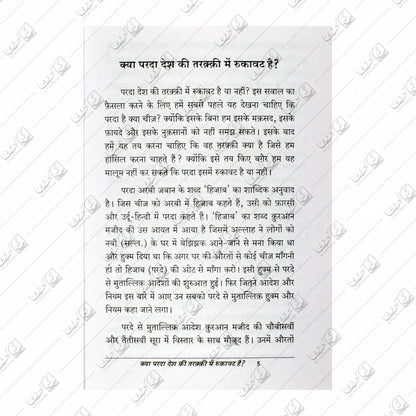 क्या परदा देश की तरक़्क़ी में रुकावट है?
परदा देश की तरक़्क़ी में रुकावट है या नहीं? इस सवाल का
फ़ैसला करने के लिए हमें सबसे पहले यह देखना चाहिए कि
परदा है क्या चीज़? क्योंकि इसके बिना हम इसके मक़सद, इसके
फ़ायदे और इसके नुक़सानों को नहीं समझ सकते। इसके बाद
हमें यह तय करना चाहिए कि वह तरक़्क़ी क्या है जिसे हम
हासिल करना चाहते हैं? क्योंकि इसे तय किए बग़ैर हम यह
मालूम नहीं कर सकते कि परदा इसमें रुकावट है या नहीं।
परदा अरबी ज़बान के शब्द 'हिजाब' का शाब्दिक अनुवाद
है। जिस चीज़ को अरबी में हिजाब कहते हैं, उसी को फ़ारसी
और उर्दू-हिन्दी में परदा कहते हैं। 'हिजाब' का शब्द क़ुरआन
मजीद की उस आयत में आया है जिसमें अल्लाह ने लोगों को
नबी (सल्ल.) के घर में बेझिझक आने-जाने से मना किया था
और हुक्म दिया था कि अगर घर की औरतों से कोई चीज़ माँगनी
हो तो हिजाब (परदे) की ओट से माँगा करो। इसी हुक्म से परदे
से मुताल्लिक़ आदेशों की शुरुआत हुई। फिर जितने आदेश और
नियम इस बारे में आए उन सबको परदे से मुताल्लिक़ हुक्म और
नियम कहा जाने लगा।
परदे से मुताल्लिक़ आदेश क़ुरआन मजीद की चौबीसवीं
और तैंतीसवीं सूरा में विस्तार के साथ मौजूद हैं। उनमें औरतों
क्या परदा देश की तरक़्क़ी में रुकावट है? 5